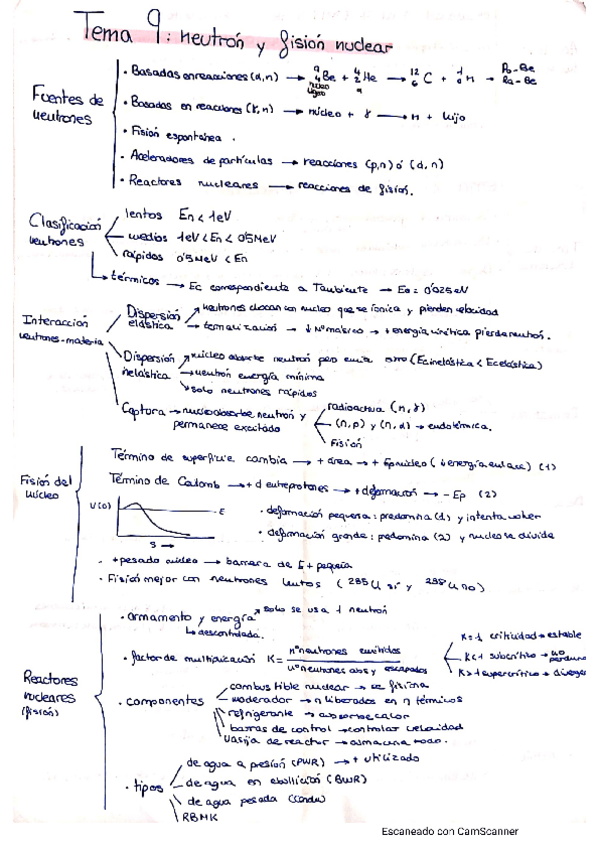 Tema 9: neutrón y fisión nuclear
Fuentes de neutrones
· Basadas en reacciones (α,n) → ⁹₄Be + ⁴₂He → ¹²₆C + ¹₀n → Po-Be Ra-Be
núcleo ligero α
· Basadas en reacciones (γ,n) → núcleo + γ → n + hijo
· Fisión espontánea.
· Aceleradores de partículas → reacciones (p,n) ó (d,n)
· Reactores nucleares → reacciones de fisión.
Clasificación neutrones
lentos En < 1eV
medios 1eV < En < 0'5MeV
rápidos 0'5MeV < En
térmicos → Ec correspondiente a Tambiente → Eo = 0'025eV
Interacción neutrones-materia
Dispersión elástica
neutrones chocan con nucleo que se ionica y pierden velocidad
→ termalización → ↓ Nº másico → + energía cinética pierde neutrón.
Dispersión inelástica
núcleo absorbe neutrón pero emite otro (Ecinelástica < Ecelástica)
→ neutrón energía mínima
solo neutrones rápidos
Captura → nucleo absorbe neutrón y permanece excitado
radioactiva (n,γ)
(n,p) y (n,α) → endotérmica.
Fisión
Fisión del núcleo
Término de superficie cambia → + área → + Epnúcleo (↓ energía enlace) (1)
Término de Coulomb → + d entre protones → + deformación → - Ep (2)
U(o) E
S →
· deformación pequeña: predomina (1) y intenta volver
· deformación grande: predomina (2) y nucleo se divide
· + pesado núcleo → barrera de E + pequeña
· Fisión mejor con neutrones lentos (235U sí y 238U no)
Reactores nucleares (fisión)
· armamento y energía
solo se usa 1 neutrón
descontrolada.
· factor de multiplicación K = nº neutrones emitidos
nº neutrones abs y escapados
K=1 criticidad → estable
K<1 subcrítico → no perdura
K>1 supercrítico →
· componentes
combustible nuclear → se fisiona
moderador → n liberados en n térmicos
refrigerante → absorbe calor
barras de control → controlar velocidad
vasija de reactor → almacena todo.
· tipos
de agua a presión (PWR) → + utilizado
de agua en ebullición (BWR)
de agua pesada (candu)
RBMK
Escaneado con CamScanner